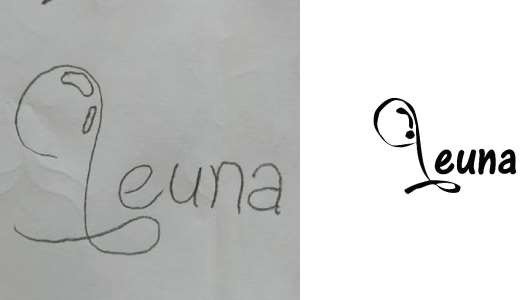 Leuna
Leuna